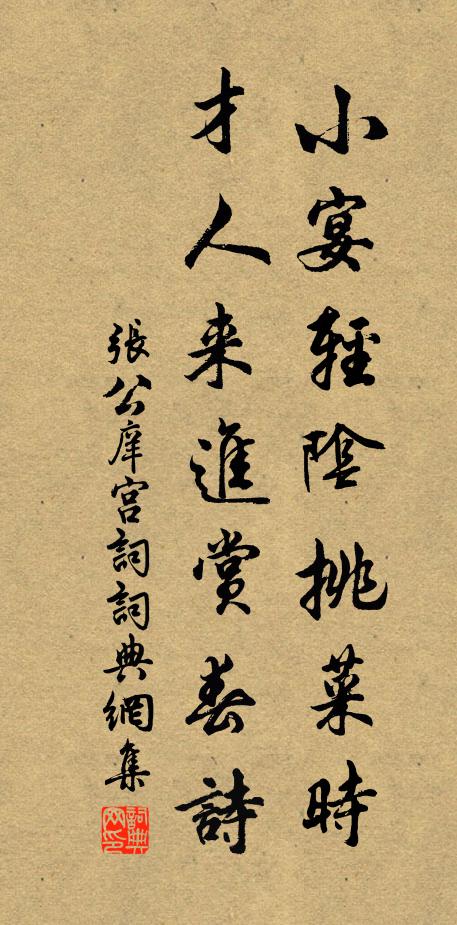 小宴輕陰挑菜時
才人来進賞春詩
張公庠宫詞詞典網集
詞典网印